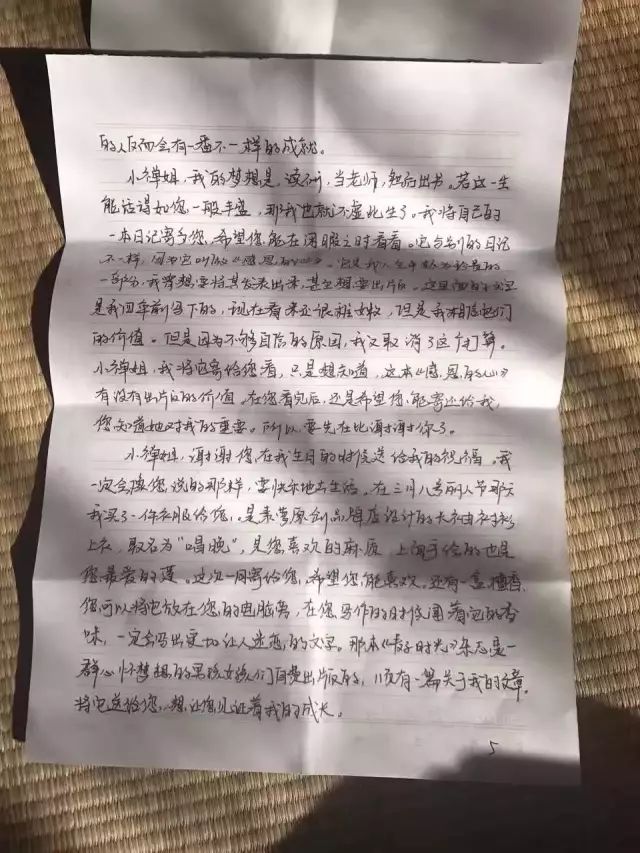 的人反而会有一番不一样的成就。
小禅姐,我的梦想是,读研,当老师,然后出书。若这一生
能活得如您一般丰盛,那我也就不虚此生了。我将自己的
一本日记寄予您,希望您能在闲暇之时看看。它与别的日记
不一样,因为它叫做《感恩的心》。它是我人生中较为珍贵的
一部分,我曾想要将其发表出来,甚至想要出版。这里面的文字
是我四年前写下的,现在看来还很稚嫩,但是我相信它们
的价值。但是因为不够自信的原因,我又取消了这个打算。
小禅姐,我将它寄给您看,只是想知道,这本《感恩的心》
有没有出版的价值,在您看完后,还是希望您能寄还给我,
您知道她对我的重要。所以要先在此谢谢你了。
小禅姐,谢谢您在我生日的时候送给我的祝福。我
一定会像您说的那样,要快乐地去生活。在三月八号丽人节那天
我买了一件衣服给您,是素萝原创品牌店设计的长袖衬衫
上衣,取名为“唱晚”,是您喜欢的麻质,上面手绘的也是
您最爱的莲。这次一同寄给您,希望您能喜欢。还有一盒檀香,
您可以将它放在您的电脑旁,在您写作的时候闻着它的香
味,一定会写出更加让人迷恋的文字。那本《春子时光》杂志是一
群心怀梦想的男孩女孩们自费出版的,里面有一篇关于我的文章,
将它送给您,想让您见证着我的成长。
5